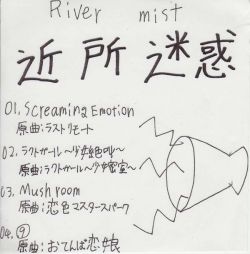 River mist
近所迷惑
01. Screaming Emotion
原曲:ラストリモート
02. ラクトガール〜少女絶叫〜
原曲:ラクトガール〜少女密室〜
03. Mushroom
原曲:恋色マスタースパーク
04. ⑨
原曲:おてんば恋娘